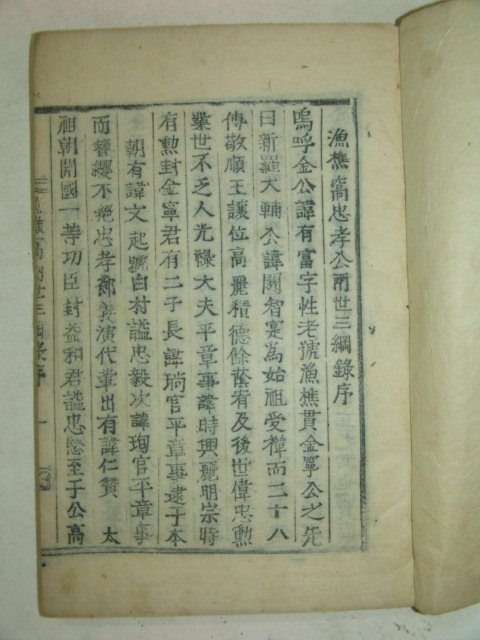 漁樵窩忠孝公兩世三綱錄序
嗚呼金公諱有富字性老號漁樵貫金寧公之先
曰新羅大輔公諱閼智寔為始祖受禪而二十八
傳敬順王讓位高麗積德餘蔭宥及後世偉忠勲
業世不乏人光祿大夫平章事諱時興麗明宗時
有勲封金寧君有二子長諱瑞官平章事逮于本
朝有諱文起號白村謚忠毅次諱珣官平章事
而簪纓不絕忠孝節義演代輩出有諱仁贊 太
祖朝開國一等功臣封益和君謚忠愍至于公高
兩世三綱錄序 一